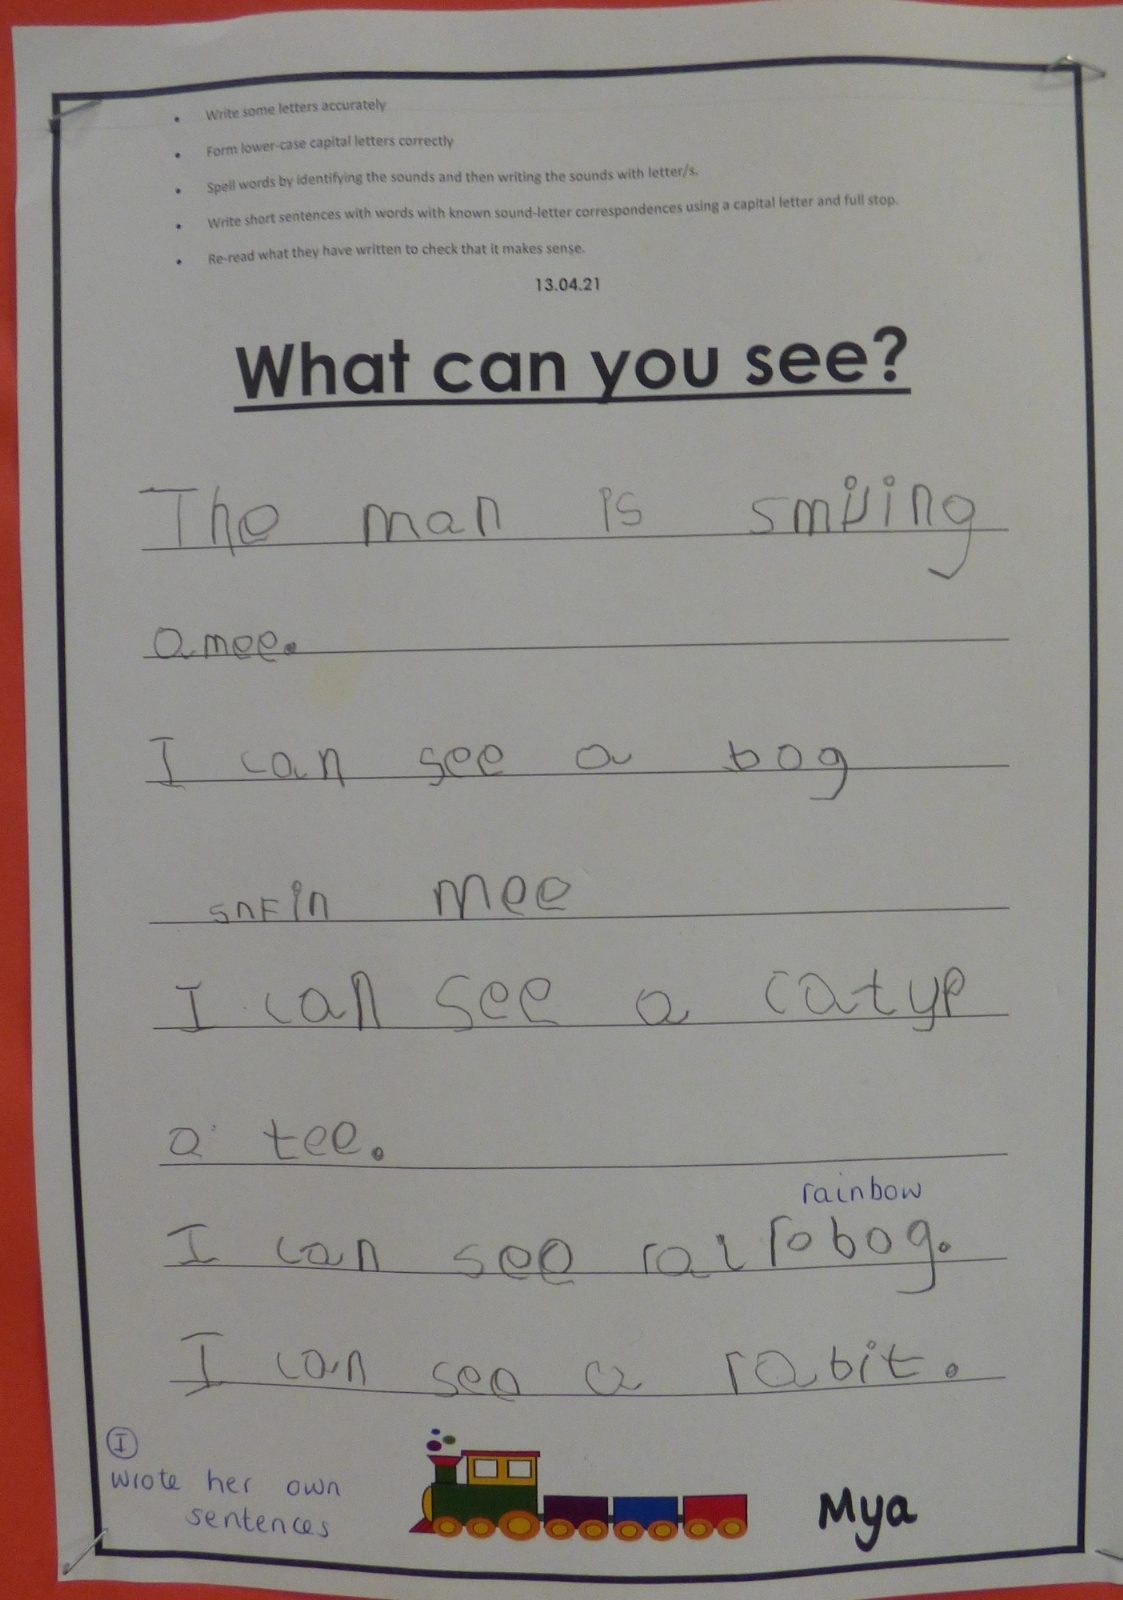 Write some letters accurately
Form lower-case capital letters correctly
Spell words by identifying the sounds and then writing the sounds with letter/s.
Write short sentences with words with known sound-letter correspondences using a capital letter and full stop.
Re-read what they have written to check that it makes sense.
13.04.21
What can you see?
The man is smiling
a mee.
I can see a bog
snFin mee
I can see a catyp
a tee.
rainbow
I can see rai robog.
I can see a rabit.
I
wrote her own
sentences
Mya